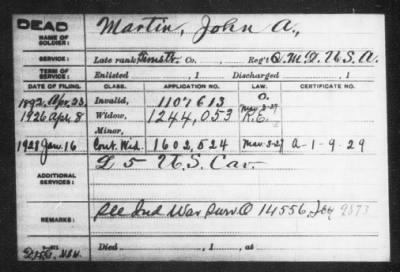 DEAD
NAME OF SOLDIER: Martin, John A.,
SERVICE: Late rank, Co. Reg't Q.M.D. U.S.A.
TERM OF SERVICE: Enlisted , 1 Discharged , 1
DATE OF FILING. CLASS. APPLICATION NO. LAW. CERTIFICATE NO.
1892. Apr. 23. Invalid, 1107613 O.
1926 Apr. 8 Widow, 1244,053 R.E.
Minor,
1928 Jan. 16 Cont. Wid. 1602,524 Mar. 3-27 A-1-9-29
ADDITIONAL SERVICES: L 5 U.S. Cav.
REMARKS: See Ind War Surv O 14556,
Died , 1 at